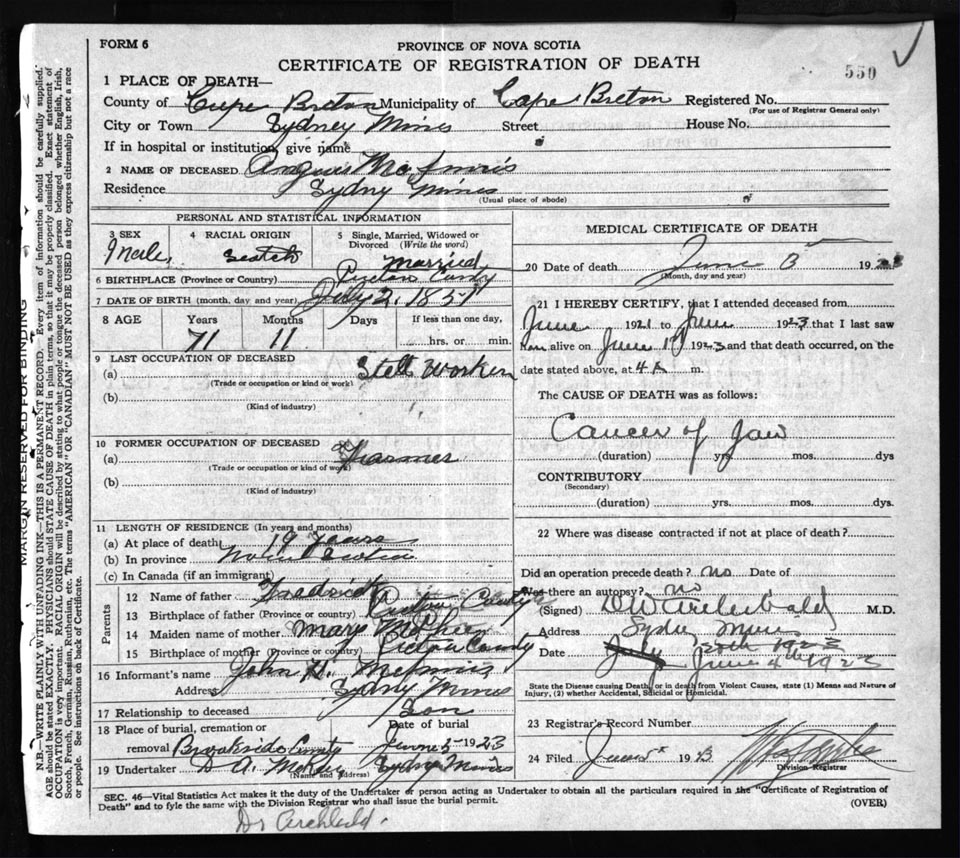 FORM 6
PROVINCE OF NOVA SCOTIA
CERTIFICATE OF REGISTRATION OF DEATH
550
1 PLACE OF DEATH—
County of Cape Breton Municipality of Cape Breton Registered No.
(For use of Registrar General only)
City or Town Sydney Mines Street House No.
If in hospital or institution, give name
2 NAME OF DECEASED Angus McInnis
Residence Sydney Mines
(Usual place of abode)
PERSONAL AND STATISTICAL INFORMATION
3 SEX 4 RACIAL ORIGIN 5 Single, Married, Widowed or Divorced (Write the word)
Male Scotch Married
6 BIRTHPLACE (Province or Country) Pictou County
7 DATE OF BIRTH (month, day and year) July 2, 1851
8 AGE Years Months Days If less than one day,
71 11 hrs. or min.
9 LAST OCCUPATION OF DECEASED
(a) Stell Worker
(Trade or occupation or kind of work)
(b)
(Kind of industry)
10 FORMER OCCUPATION OF DECEASED
(a) Farmer
(Trade or occupation or kind of work)
(b)
(Kind of industry)
11 LENGTH OF RESIDENCE (In years and months)
(a) At place of death 19 Years
(b) In province Nova Scotia
(c) In Canada (if an immigrant)
Parents
12 Name of father Fredrick
13 Birthplace of father (Province or country) Pictou County
14 Maiden name of mother Mary
15 Birthplace of mother (Province or country) Pictou County
16 Informant's name John H. McInnis
Address Sydny Mines
17 Relationship to deceased Son
18 Place of burial, cremation or removal Date of burial
Brookside June 5 1923
19 Undertaker D A. Sydny Mines
(Name and address)
MEDICAL CERTIFICATE OF DEATH
20 Date of death June 3 192
(Month, day and year)
21 I HEREBY CERTIFY, that I attended deceased from
June 1921 to June 1923 that I last saw
alive on June 1923 and that death occurred, on the
date stated above, at 4 A m.
The CAUSE OF DEATH was as follows:
Cancer of Jaw
(duration) yrs. mos. dys
CONTRIBUTORY
(Secondary)
(duration) yrs. mos. dys.
22 Where was disease contracted if not at place of death?
Did an operation precede death? no Date of
Was there an autopsy? no
(Signed) D W Archibald M.D.
Address Sydney Mines
Date July 1923
June 4th 1923
State the Disease causing Death, or in death from Violent Causes, state (1) Means and Nature of
Injury, (2) whether Accidental, Suicidal or Homicidal.
23 Registrar's Record Number
24 Filed June 192
Division Registrar
SEC. 46—Vital Statistics Act makes it the duty of the Undertaker or person acting as Undertaker to obtain all the particulars required in the "Certificate of Registration of
Death" and to fyle the same with the Division Registrar who shall issue the burial permit.
(OVER)
Dr Archibald.
MARGIN RESERVED FOR BINDING
N.B.—WRITE PLAINLY WITH UNFADING INK—THIS IS A PERMANENT RECORD. Every item of information should be carefully supplied.
AGE should be stated EXACTLY. PHYSICIANS should STATE CAUSE OF DEATH in plain terms, so that it may be properly classified. Exact statement of
OCCUPATION is very important. RACIAL ORIGIN will be described by stating to what people or tongue the deceased person belonged whether English, Irish,
Scotch, French, German, Russian, Ruthenian, etc. The terms "AMERICAN" OR "CANADIAN" MUST NOT BE USED as they express citizenship but not a race
or people. See instructions on back of Certificate.